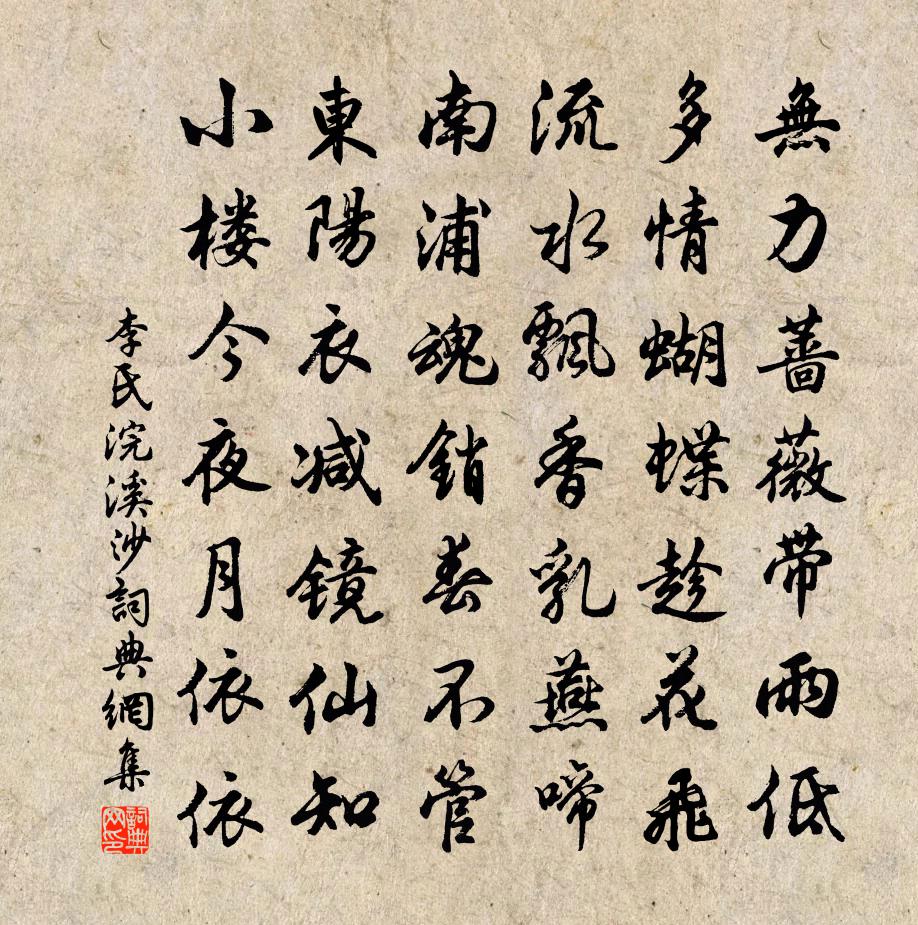 無力薔薇帶雨低
多情蝴蝶趁花飛
流水飄香乳燕啼
南浦魂銷春不管
東陽衣減镜仙知
小楼今夜月依依
李氏浣溪沙詞典網集
詞典网印